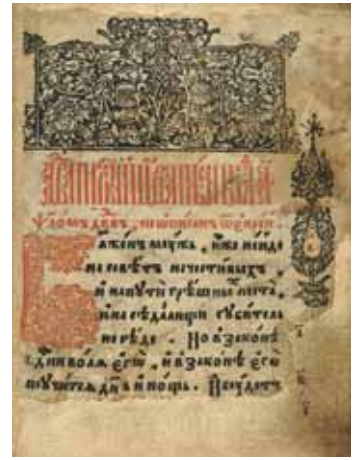 Ѱаломъ дв҃двъ
Блаженъ мѹжъ , иже неиде
на совѣтъ нечестивыхъ ,
и напути грѣшныⷯ неста ,
и на сѣдалищи губитель
несѣде . Но в законѣ
гд҃ни волѧ єго , и в законѣ єго
поучитсѧ дн҃ь и нощь . И будетъ